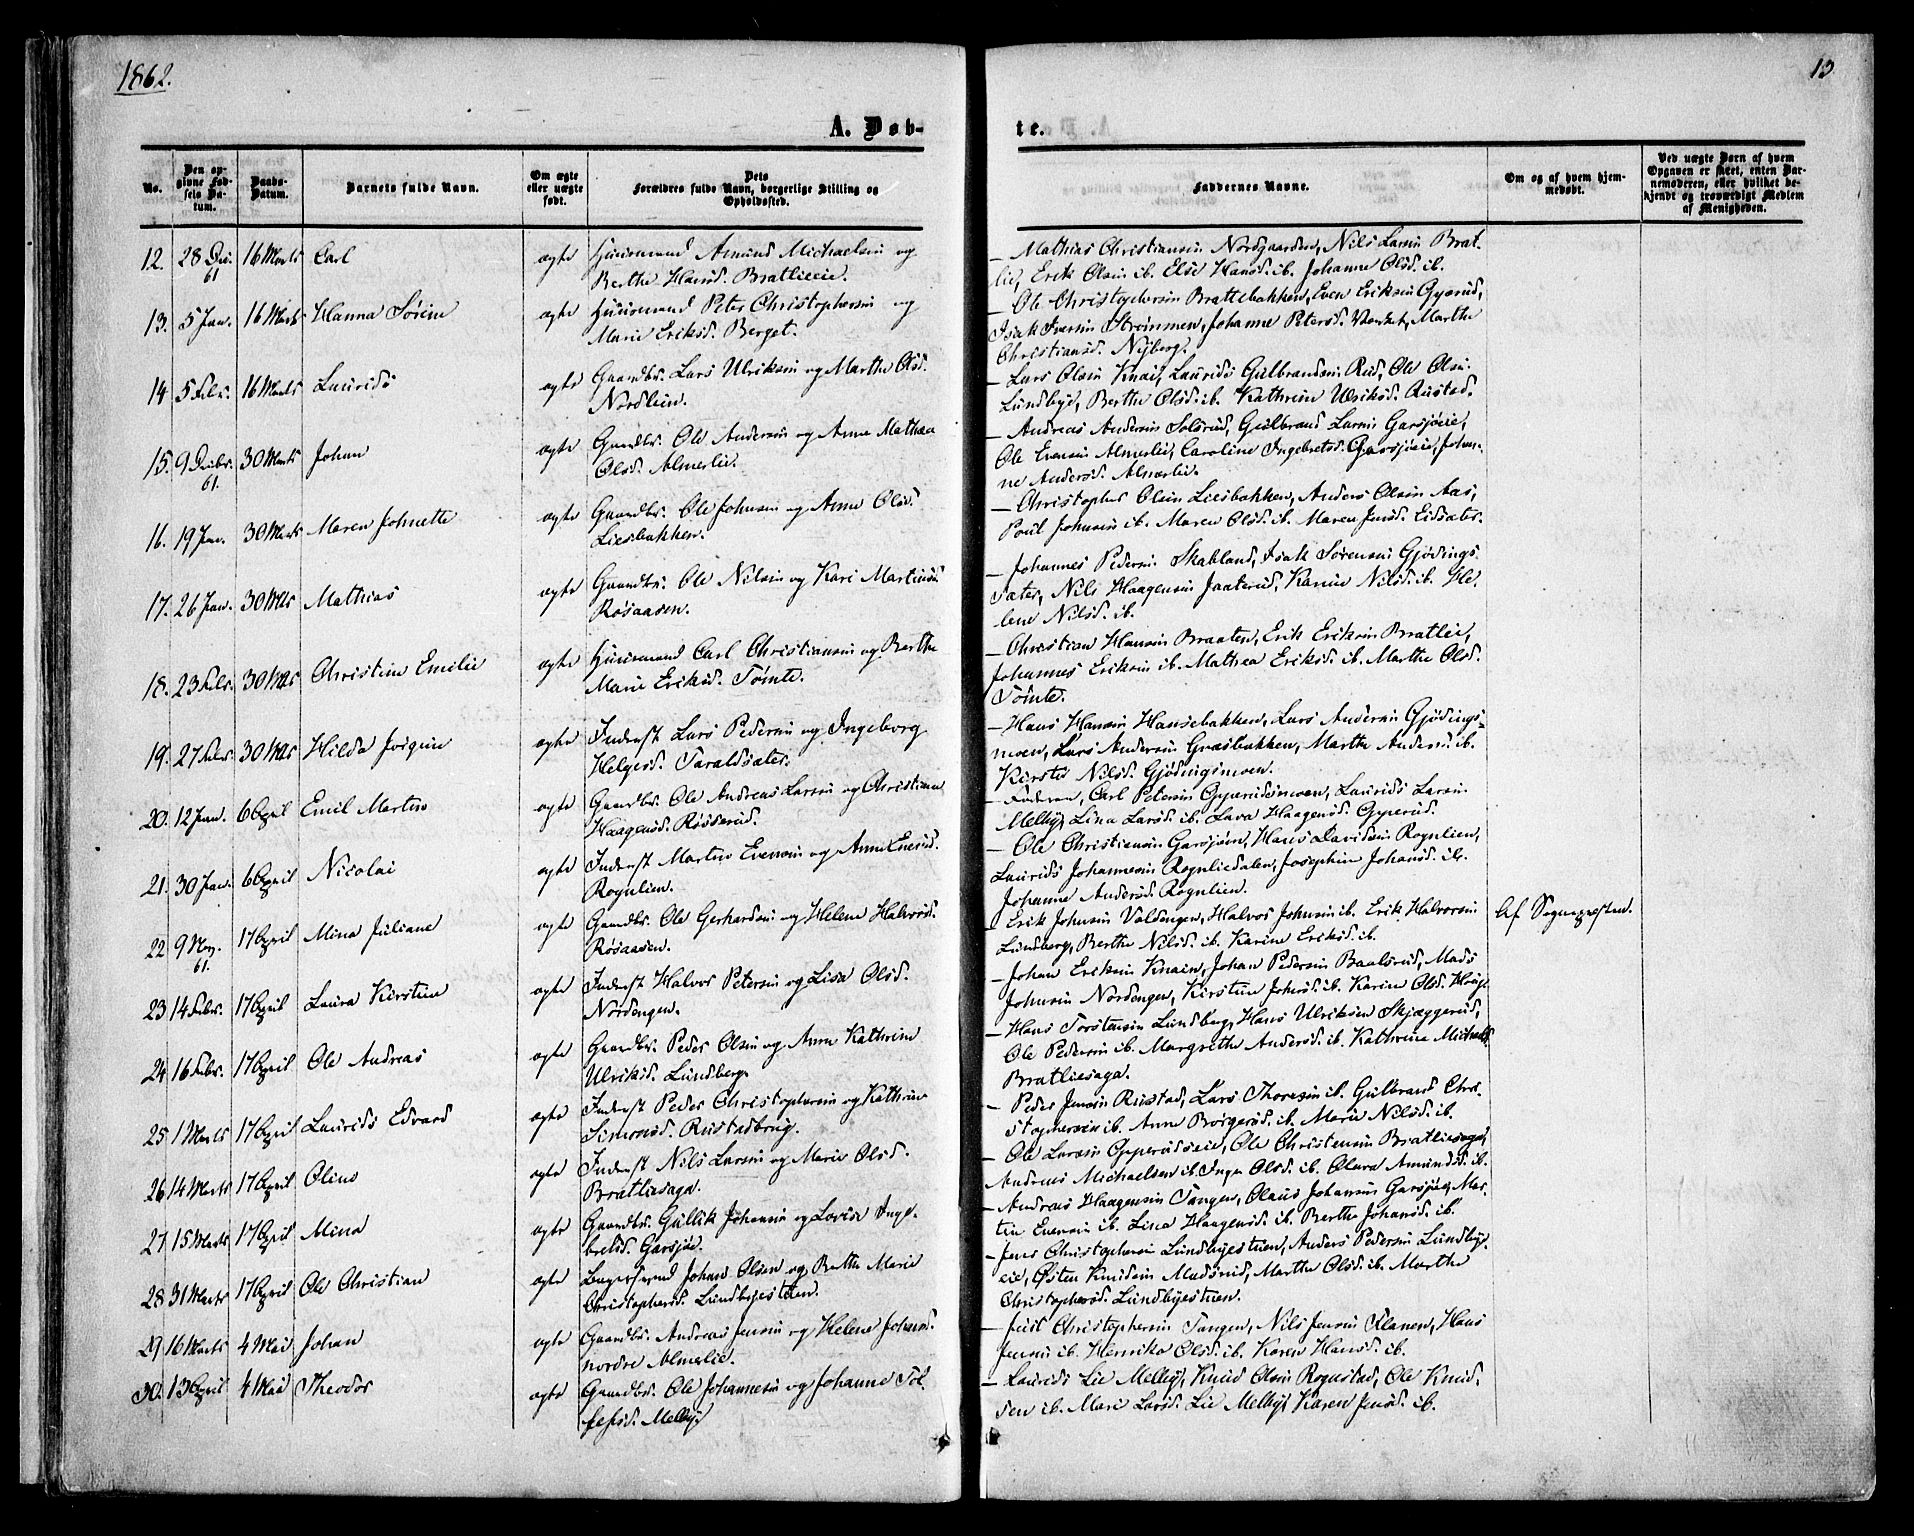 1862.
10
A. Døb-
te.
No.
Den op-
givne Fød-
sels Da-
tum.
Daabs-
Datum.
Barnets fulde Navn.
Om ægte
eller uægte
født.
Dets
Forældres fulde Navn, borgerlige Stilling og
Opholdssted.
Faddernes Navne.
Om og af hvem hjem-
medøbt.
Ved uægte Børn af hvem
Opgaven er skeet, enten Bar-
nemoderen, eller hvilket be-
kjendt og troværdigt Medlem
af Menigheden.
12. 28 Dec. 61 16 Marts Carl ægte Huusmand Amund Michaelsen og
Berthe Hansd. Bratlieeie.
– Mathias Christiansen Nordgaarden, Nils Larsen Brat-
lie, Erik Olsen ib. Else Hansd. ib. Johanne Olsd. ib.
13. 5 Jan. 16 Marts Hanna Sofie ægte Huusmand Peter Christophersen og
Marie Eriksd. Berget.
– Ole Christophersen Brattebakken, Even Eriksen Gyperud,
Isak Iversen Strømmen, Johanne Petersd. Marthe
Christiansd. Nyberg.
14 5 Febr. 16 Marts Laurids ægte Gaardbr. Lars Ulriksen og Marthe Olsd.
Nordlien.
– Lars Olsen Knai, Laurids Gulbrandsen Rud, Ole Olsen
Lundbye, Berthe Olsd. ib. Kathrine Ulriksd. Rustad.
15. 9 Decbr. 61. 30 Marts Johan ægte Gaardbr. Ole Andersen og Anne Mathea
Olsd. Almerlie.
– Andreas Andersen Solerud, Gulbrand Larsen Garsjøeie,
Ole Evensen Almerlie, Caroline Ingebretsd. Garsjøeie, Johan-
ne Andersd. Almerlie.
16. 19 Jan. 30 Marts Maren Johnette ægte Gaardbr. Ole Johnsen og Anne Olsd.
Liesbakken.
– Christopher Olsen Liesbakken, Anders Olsen Aas,
Poul Johnsen ib. Maren Olsd. ib. Maren Jensd. Eidsæter.
17. 26 Jan. 30 Mts Mathias ægte Gaardbr. Ole Nilsen og Kari Martinsd.
Røsaasen.
– Johannes Pedersen Skabland, Isak Sørensen Gjødings-
sæter, Nils Haagensen Jaaterud, Karine Nilsd. ib. He-
lene Nilsd. ib.
18. 23 Febr. 30 Mts Christine Emilie ægte Huusmand Carl Christiansen og Berthe
Marie Eriksd. Tomte.
– Christian Hansen Braaten, Erik Eriksen Bratlie,
Johannes Eriksen ib. Mathea Eriksd. ib. Marthe Olsd.
Tomte.
19. 27 Febr. 30 Mts Hilda Josefine ægte Inderst Lars Pedersen og Ingeborg
Helgesd. Taraldsæter.
– Hans Hansen Hansebakken, Lars Andersen Gjødings-
moen, Lars Andersen Græsbakken, Marthe Andersd. ib.
Kirsti Nilsd. Gjødingsmoen.
20. 12 Jan. 6 April Emil Martin ægte Gaardbr. Ole Andreas Larsen og Christiane
Haagensd. Røsserud.
– Faderen, Carl Petersen Gyperudsmoen, Laurids Larsen
Melby, Lina Larsd. ib. Lava Haagensd. Gyperud.
21. 30 Jan. 6 April Nicolai ægte Inderst Martin Evensen og Anne Enersd.
Rognlien.
– Ole Christiansen Garsjøen, Hans Davidsen Rognlien,
Laurids Johannesen Rognliedalen, Josephine Johansd. ib.
Johanne Andersd. Rognlien.
22 9 Nov. 61. 17 April Mina Juliane ægte Gaardbr. Ole Gerhardsen og Helene Halvorsd.
Røsaasen.
– Erik Johnsen Valdengen, Halvor Johnsen ib. Erik Halvorsen
Lundberg, Berthe Nilsd. ib. Karine Eriksd. ib.
Af Sognepresten.
23 14 Febr. 17 April Laura Kirstine ægte Inderst Halvor Petersen og Lisa Olsd.
Nordengen.
– Johan Eriksen Knain, Johan Pedersen Baalsrud, Mads
Johnsen Nordengen, Kirstine Johnsd. ib. Karine Olsd.
24 16 Febr. 17 April Ole Andreas ægte Gaardbr. Peder Olsen og Anne Kathrine
Ulriksd. Lundberg.
– Hans Torstensen Lundberg, Hans Ulriksen Skjæggerud,
Ole Pedersen ib. Margrethe Andersd. ib. Kathrine Michaelsd.
Bratliesaga.
25 1 Marts 17 April Laurids Edvard ægte Inderst Peder Christophersen og Kathrine
Simensd. Rustadbrug.
– Peder Jensen Rustad, Lars Thoresen ib. Gulbrand Chri-
stophersen ib. Anne Borgersd. ib. Marie Nilsd. ib.
26 14 Marts 17 April Olius ægte Inderst Nils Larsen og Marie Olsd.
Bratliesaga.
– Ole Larsen Gyperudseie, Ole Christensen Bratliesaga,
Andreas Michaelsen ib. Inge Olsd. ib. Olava Amundsd. ib.
27 15 Marts 17 April Mina ægte Gaardbr. Gullik Johansen og Lovise Inge-
bretsd. Garsjøe.
– Andreas Haagensen Tangen, Olaus Johansen Garsjøe, Mar-
tin Evensen ib. Lina Haagensd. ib. Berthe Johansd. ib.
28 31 Marts 17 April Ole Christian ægte Johan Olsen og Berthe Marie
Christophersd. Lundbyestuen.
– Jens Christophersen Lundbyestuen, Anders Pedersen Lundby-
eie, Østen Knudsen Madsrud, Marthe Olsd. ib. Marthe
Christophersd. Lundbyestuen.
29 16 Marts 4 Mai Johan ægte Gaardbr. Andreas Jensen og Helene Johansd.
nordre Almerlie.
– Just Christophersen Tangen, Nils Jensen Klanen, Hans
Jensen ib. Henrika Olsd. ib. Karen Hansd. ib.
30. 13 April 4 Mai Theodor ægte Gaardbr. Ole Johannesen og Johanne Tol-
lefsd. Melby.
– Laurids Lie Melby, Knud Olsen Rognstad, Ole Knud-
sen ib. Mari Larsd. Lie Melby, Karen Jensd. ib.